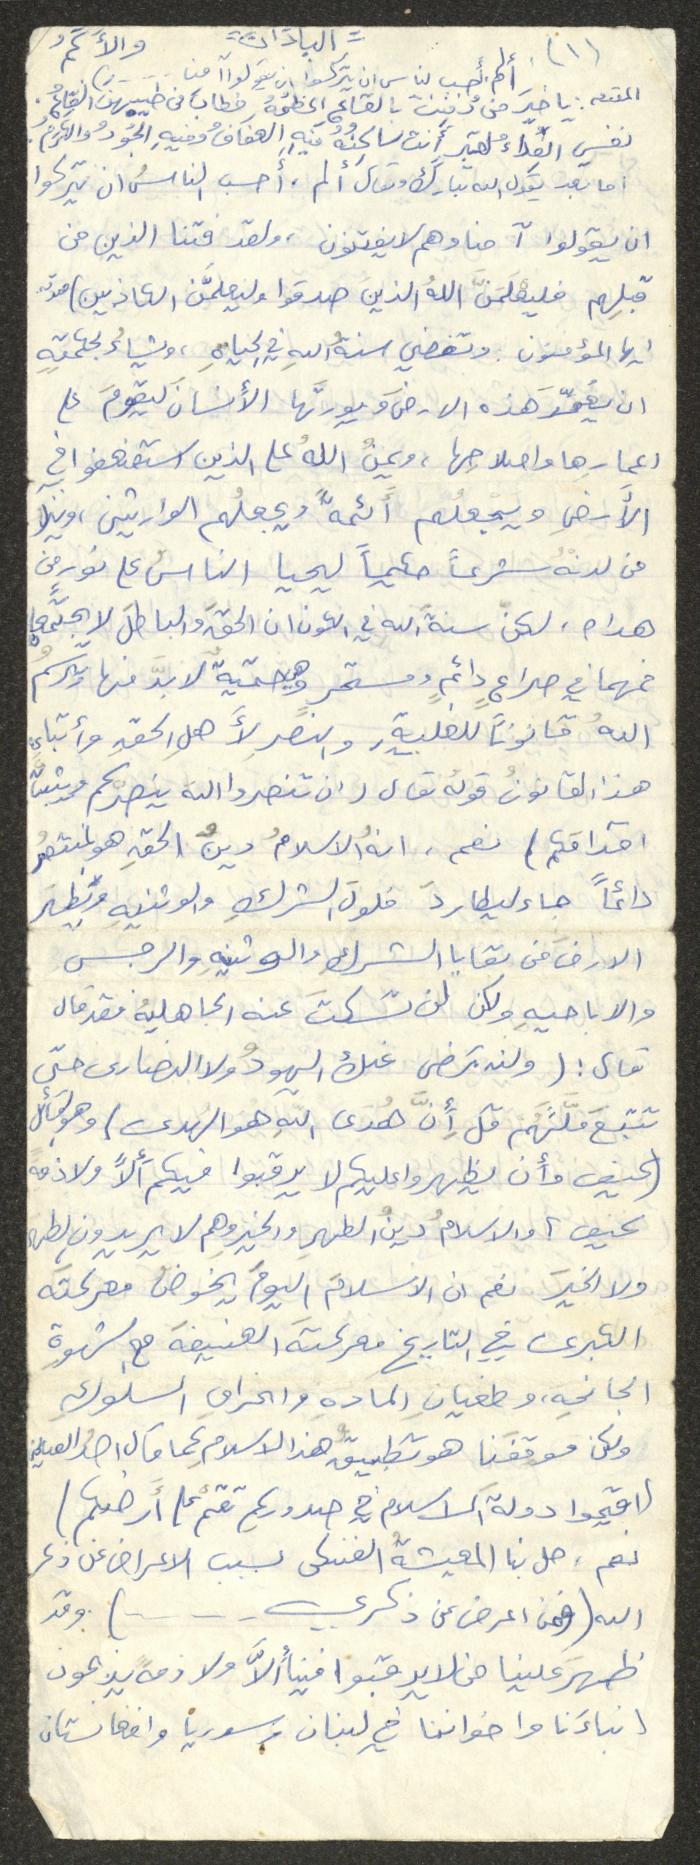 (١) = البادآت = والأكم
ألم أحسب الناس ان يتركوا ان يقولوا آمنا ــ ــ ــ )
المقدمه: يا خيرَ من دُفِنتْ بالقاعِ اعظمُهُ فطابَ من طيبهنَّ القاعُ
نفسي الفداءُ لقبرٍ أنت ساكنُهُ فيهِ العفافُ وفيهِ الجُودُ والكرمُ
اما بعد يقول الله تبارك وتعالى ألم ، أحسب الناسُ ان يتركوا
ان يقولوا آمنا وهم لا يفتنون ، ولقد فتنا الذين من
قبلِهم فليعْلَمَنَّ اللهُ الذينَ صدقوا وليعلمَّن الكاذبين)
أيها المؤمنون . وتمضي سنةُ اللهِ في الحياةِ ، ويشاءُ بحكمتِهِ
ان يعمِّرَ هذه الارضَ ويورثَها الأنسانَ ليقومَ على
اعمارِها واصلاحِها ، ويمنُ اللهُ على الذين استضعفوا في
الأرضِ ويجعلهم أئمةً ويجعلُهم الوارثين ، وينزل
من لدنْهُ شرعاً حكيماً ليحيا الناسُ على نورٍ من
هداه ، لكن سنةَ الله في الكون ان الحقَ والباطلَ لا يجتمعا
فهما في صراعٍ دائمٍ ومستمر وهي حتمية لا بدَّ منها ويرسمُ
اللهُ قانوناً للغلبةِ والنصرِ لأهلِ الحقِ وأتباعِهِ
هذا القانونُ قولُهُ تعالى (ان تنصروا الله ينصركم ويثبت
اقدامكم) نعم ، انهُ الاسلامُ دينُ الحقِ هو المنتصرُ
دائماً جاء ليطاردَ فلولَ الشركِ والوثنيهِ ويُطهر
الارضَ من بقايا الشركِ والوثنيهِ والرجس
والاباحيهِ ولكن لن تسكتَ عنه الجاهليةُ فقد قال
تعالى : ( ولن ترضى عنك اليهودُ ولا النصارى حتى
تتبعَ مِلَّتَهُم قل أِنَّ هُدَى اللهِ هو الهدى) وهو القائل
(كيف وأن يظهروا عليكم لا يرقبوا فيكم ألاًّ ولا ذمةً
كيف ؟ والاسلامُ دينُ الطهرِ والخيرِ وهم لا يريدون الطهرَ
ولا الخيرَ نعم ان الاسلامَ اليومَ يخوضُ معركتَه
الكبرى في التاريخِ معركتَه العنيفةَ مع الشهوةِ
الجامحةِ ، وطغيانِ المادهِ وانحرافِ السلوكِ
ولكن موقفَنا هو تطبيقُ هذا الاسلامِ كما قال احدُ
(اقيموا دولةَ الاسلام في صدوركم تقمْ على أرضكم)
نعم ، حل بنا المعيشةُ الضنكى بسبب الاعراض عن ذكرِ
الله (فمن اعرض عن ذكري ــ ــ ــ ) وقد
ظهرَ علينا من لا يرقبوا فينا ألاًّ ولا ذمةً يذبحون
ابناءَنا واخواننا في لبنان وسوريا وافغانستان